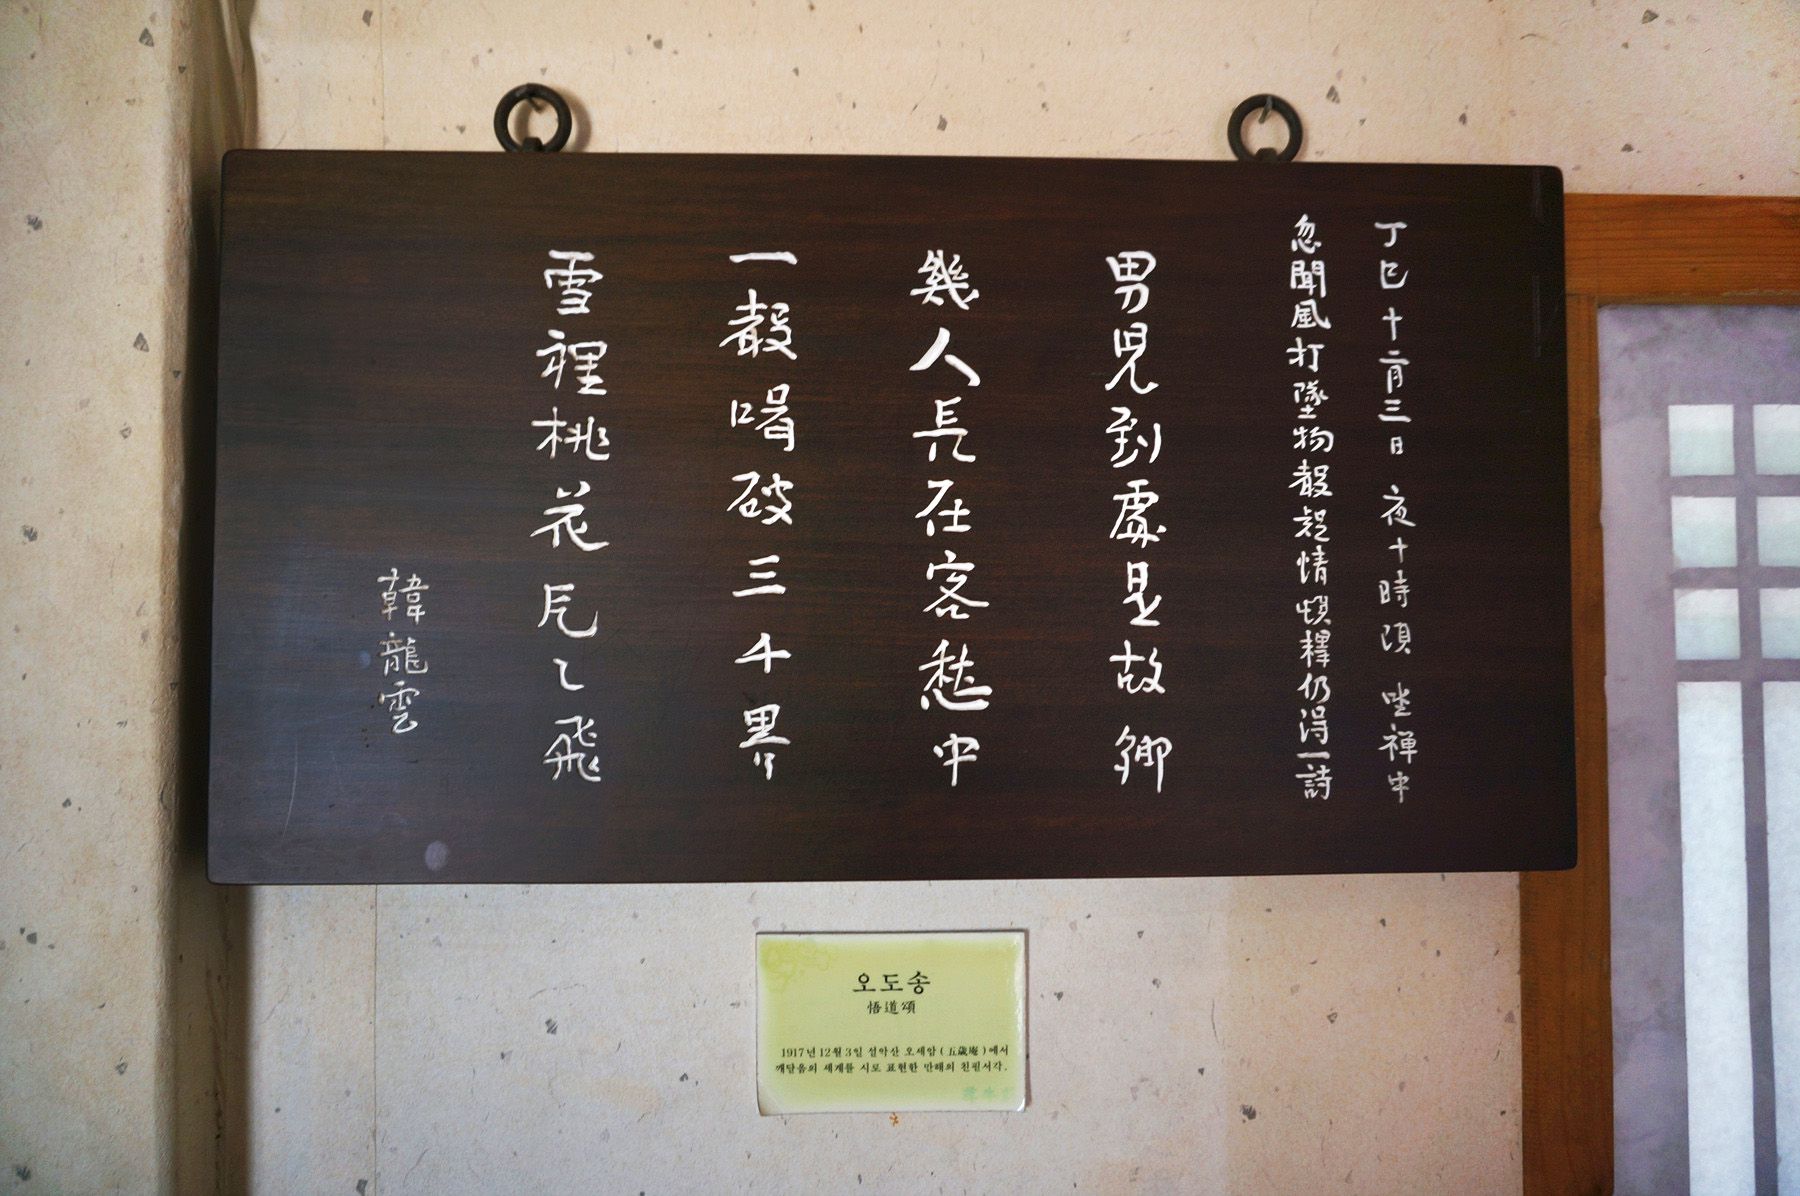 丁巳十二月三日 夜十時頃 坐禪中
忽聞風打墜物聲疑情頓釋仍得一詩
男兒到處是故鄕
幾人長在客愁中
一聲喝破三千界
雪裡桃花片々飛
韓龍雲
오도송
悟道頌
1917년 12월 3일 설악산 오세암(五歲庵)에서
깨달음의 세계를 시로 표현한 만해의 친필서각.